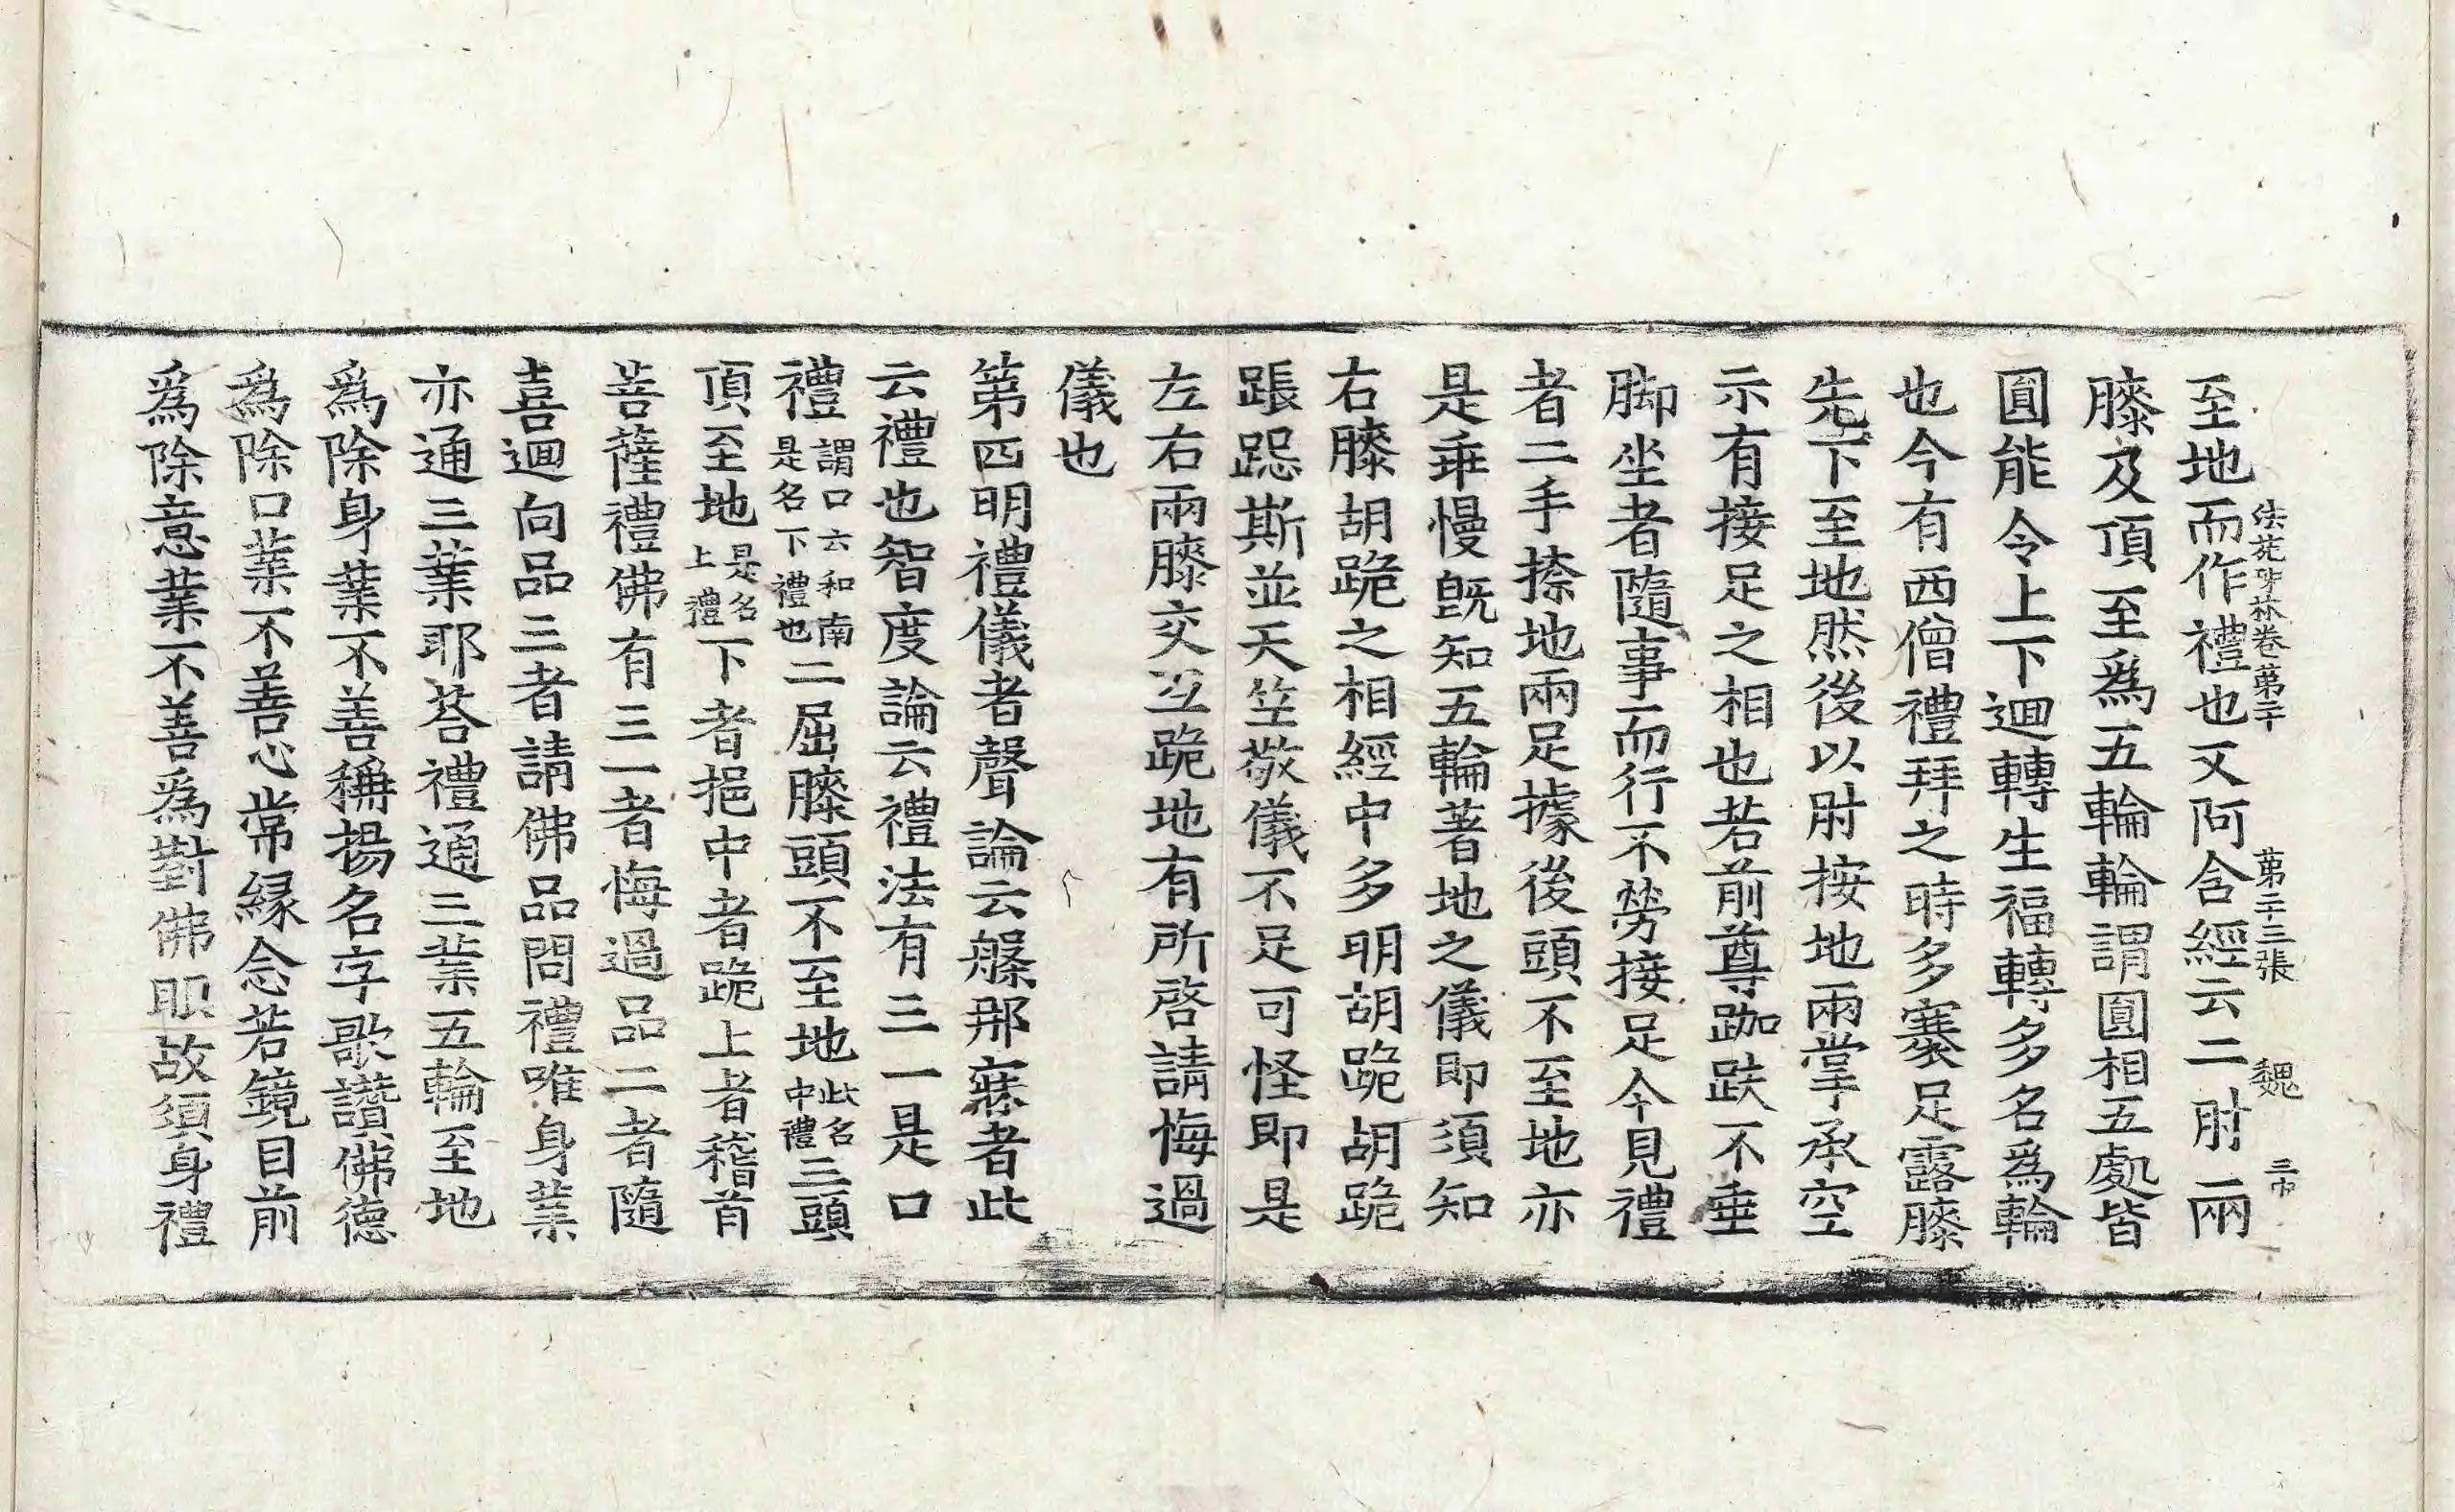 法苑珠林卷第二十　第二十三張　魏
至地而作禮也又阿含經云二肘兩
膝及頂至為五輪輪謂圓相五處皆
圓能令上下迴轉生福轉多名為輪
也今有西僧禮拜之時多褰足露膝
先下至地然後以肘按地兩掌承空
示有接足之相也若前尊跏趺不垂
脚坐者隨事而行不勞接足今見禮
者二手捺地兩足據後頭不至地亦
是乖慢旣知五輪著地之儀即須知
右膝胡跪之相經中多明胡跪胡跪
䠆跽斯並天竺敬儀不足可怪即是
左右兩膝交互跪地有所啓請悔過
儀也
第四明禮儀者聲論云槃那寐者此
云禮也智度論云禮法有三一是口
禮謂口云和南是名下禮也二屈膝頭不至地此名中禮三頭
頂至地是名上禮下者挹中者跪上者稽首
菩薩禮佛有三一者悔過品二者隨
喜迴向品三者請佛品問禮唯身業
亦通三業耶荅禮通三業五輪至地
為除身業不善稱揚名字歌讚佛德
為除口業不善心常緣念若鏡目前
為除意業不善為對佛眼故須身禮